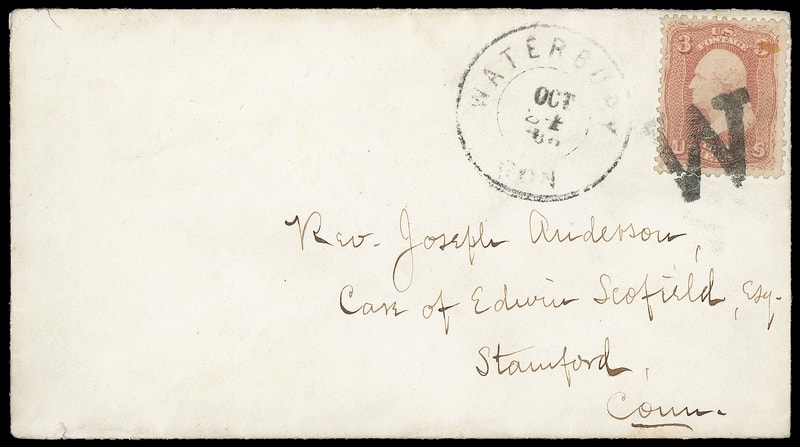 WATERBURY
OCT
24
CON
3 U.S. 3
POSTAGE
U S
W
Rev. Joseph Anderson,
Care of Edwin Scofield, Esq.
Stamford,
Conn.